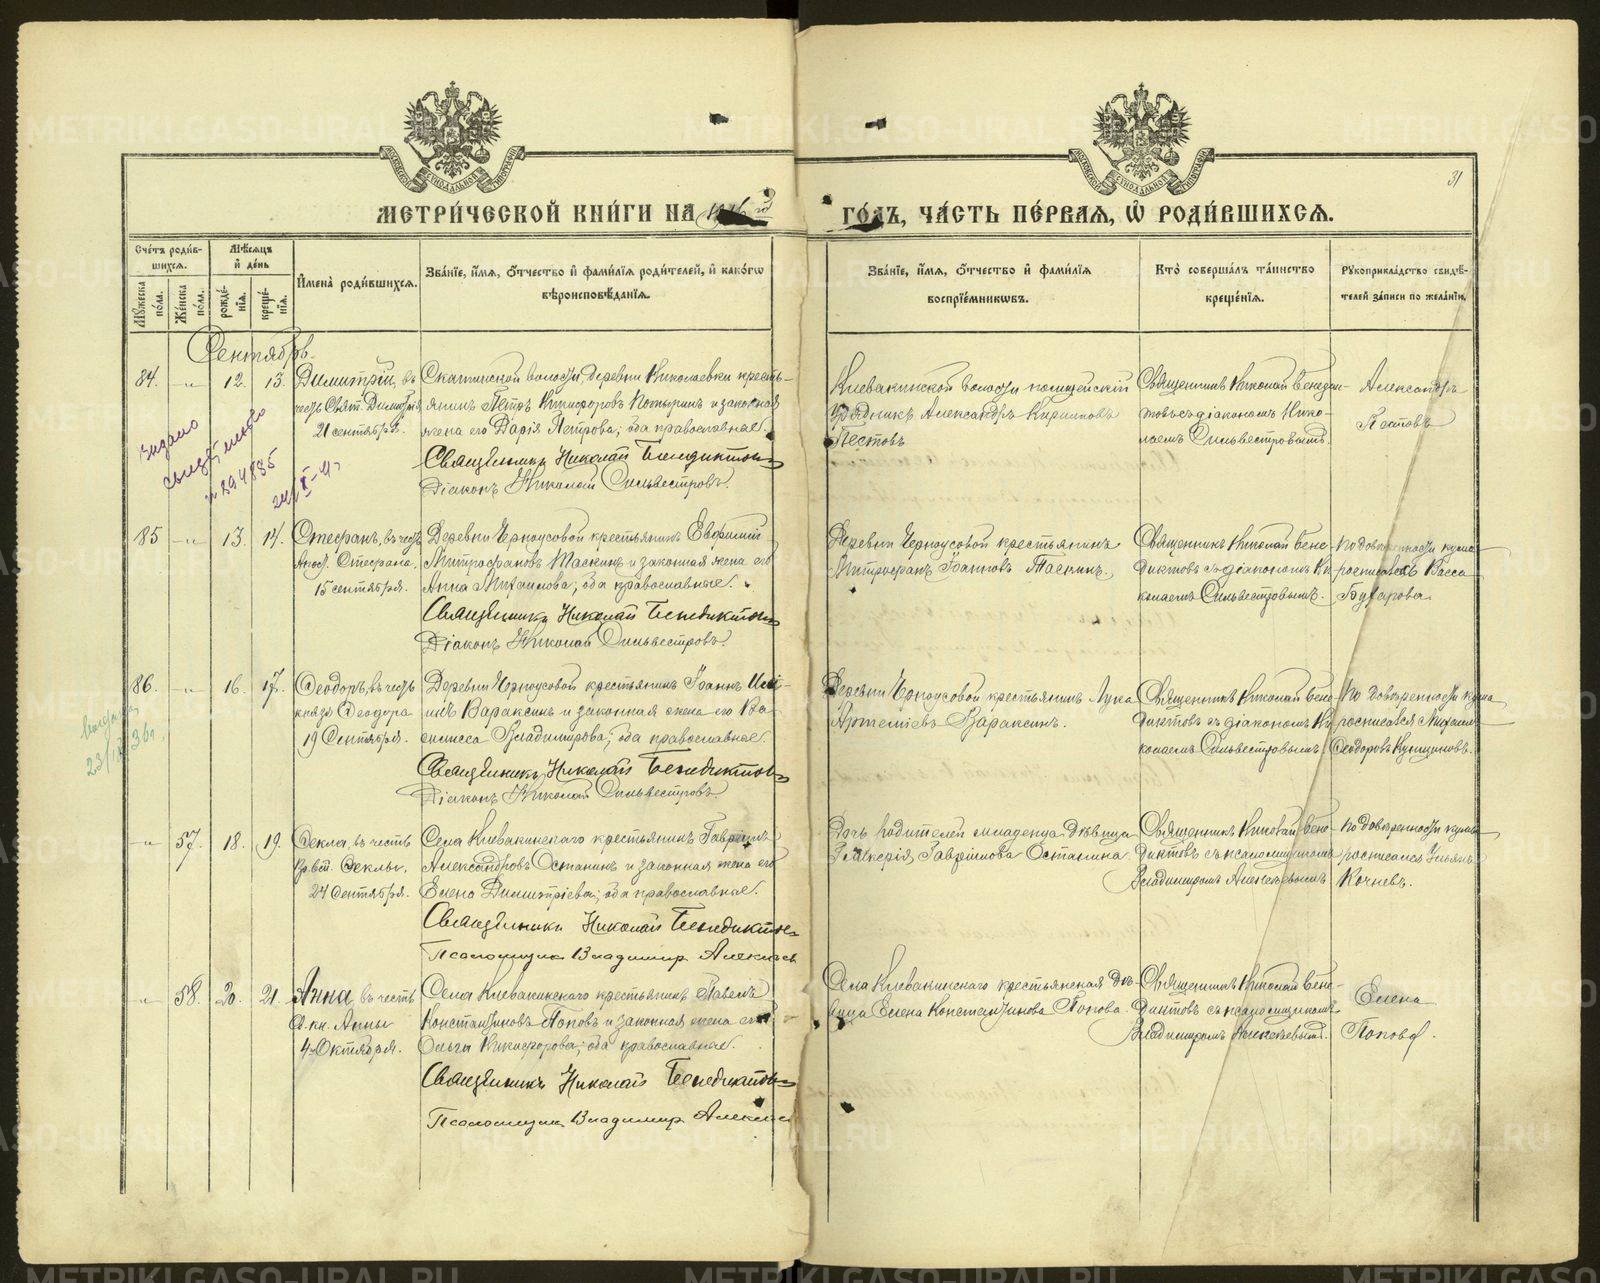 МЕТРИ́ЧЕСКОЙ КНИ́ГИ НА 1916 й
ГО́ДЪ, ЧА́СТЬ ПЕ́РВАЯ, Ѽ РОДИ́ВШИХСЯ.
31
Сче́тъ роди́в-
шихся.
Мѣ́сяцъ
и҆ де́нь
Мꙋ́жеска по́ла.
Же́нска по́ла.
рожде́-
нїя.
креще́-
нїя.
И҆мена̀ роди́вшихся.
Зва́нїе, и҆́мя, ѻ҆́тчество и҆ фами́лїя роди́телей, и҆ како́гѡ
вѣроисповѣ́данїя.
Зва́нїе, и҆́мя, ѻ҆́тчество и҆ фами́лїя
воспрїе́мникѡвъ.
Кто̀ соверша́лъ та́инство
креще́нїя.
Рꙋкоприкла́дство свидѣ́-
телей за́писи по жела́нїю.
Сентябрь.
84. -"- 12. 13.
Димитрій, въ
честь Свят. Димитрія
21 сентября.
Скатинской волости, деревни Николаевки кресть-
янинъ Петръ Никифоровъ и законная
жена его Дарія Петрова; оба православные.
Священникъ Николай Бенедиктовъ
Діаконъ Николай Сильвестровъ.
Клевакинской волости полицейскій
урядникъ Александръ Кирилловъ
Пестовъ
Священникъ Николай Бенедик-
товъ съ діакономъ Нико-
лаемъ Сильвестровымъ.
Александръ
Пестовъ
выдано
свидѣтельство
№ 894885
85 -"- 13. 14.
Стефанъ, въ честь
Апос. Стефана.
15 сентября.
Деревни Черноусовой крестьянинъ Евфимій
Митрофановъ Таскинъ и законная жена его
Анна Михаилова; оба православные.
Священникъ Николай Бенедиктовъ
Діаконъ Николай Сильвестровъ.
Деревни Черноусовой крестьянинъ
Митрофанъ Іоанновъ Таскинъ.
Священникъ Николай Бене-
диктовъ съ діакономъ Ни-
колаемъ Сильвестровымъ.
По довѣренности кума
росписалась Васса
86. -"- 16. 17.
Ѳеодоръ, въ честь
князя Ѳеодора
19 Сентября.
Деревни Черноусовой крестьянинъ Іоаннъ
Вараксинъ и законная жена его Ва-
силисса Владимірова; оба православные.
Священникъ Николай Бенедиктовъ
Діаконъ Николай Сильвестровъ.
Деревни Черноусовой крестьянинъ Лука
Артеміевъ Вараксинъ.
Священникъ Николай Бене-
диктовъ съ діакономъ Ни-
колаемъ Сильвестровымъ.
По довѣренности кума
росписался Михаилъ
Ѳеодоровъ
-"- 57. 18. 19.
Ѳекла, въ честь
прмч. Ѳеклы.
24 Сентября.
Села Клевакинскаго крестьянинъ Гавріилъ
Александровъ Останинъ и законная жена его
Елена Димитріева; оба православные.
Священникъ Николай Бенедиктовъ
Псаломщикъ Владиміръ Алексѣевъ
Дочь родителей младенца дѣвица
Гликерія Гавріилова Останина.
Священникъ Николай Бене-
диктовъ съ псаломщикомъ
Владиміромъ Алексѣевымъ
По довѣренности кумы
росписался Ульянъ
Кочневъ.
-"- 58. 20. 21.
Анна, въ честь
Св. кн. Анны
4 Октября.
Села Клевакинскаго крестьянинъ Павелъ
Константиновъ Поповъ и законная жена его
Ольга Никифорова; оба православные.
Священникъ Николай Бенедиктовъ
Псаломщикъ Владиміръ Алексѣевъ
Села Клевакинскаго крестьянская дѣ-
вица Елена Константинова Попова.
Священникъ Николай Бене-
диктовъ съ псаломщикомъ
Владиміромъ Алексѣевымъ.
Елена
Попова.
METRIKI.GASO-URAL.RU